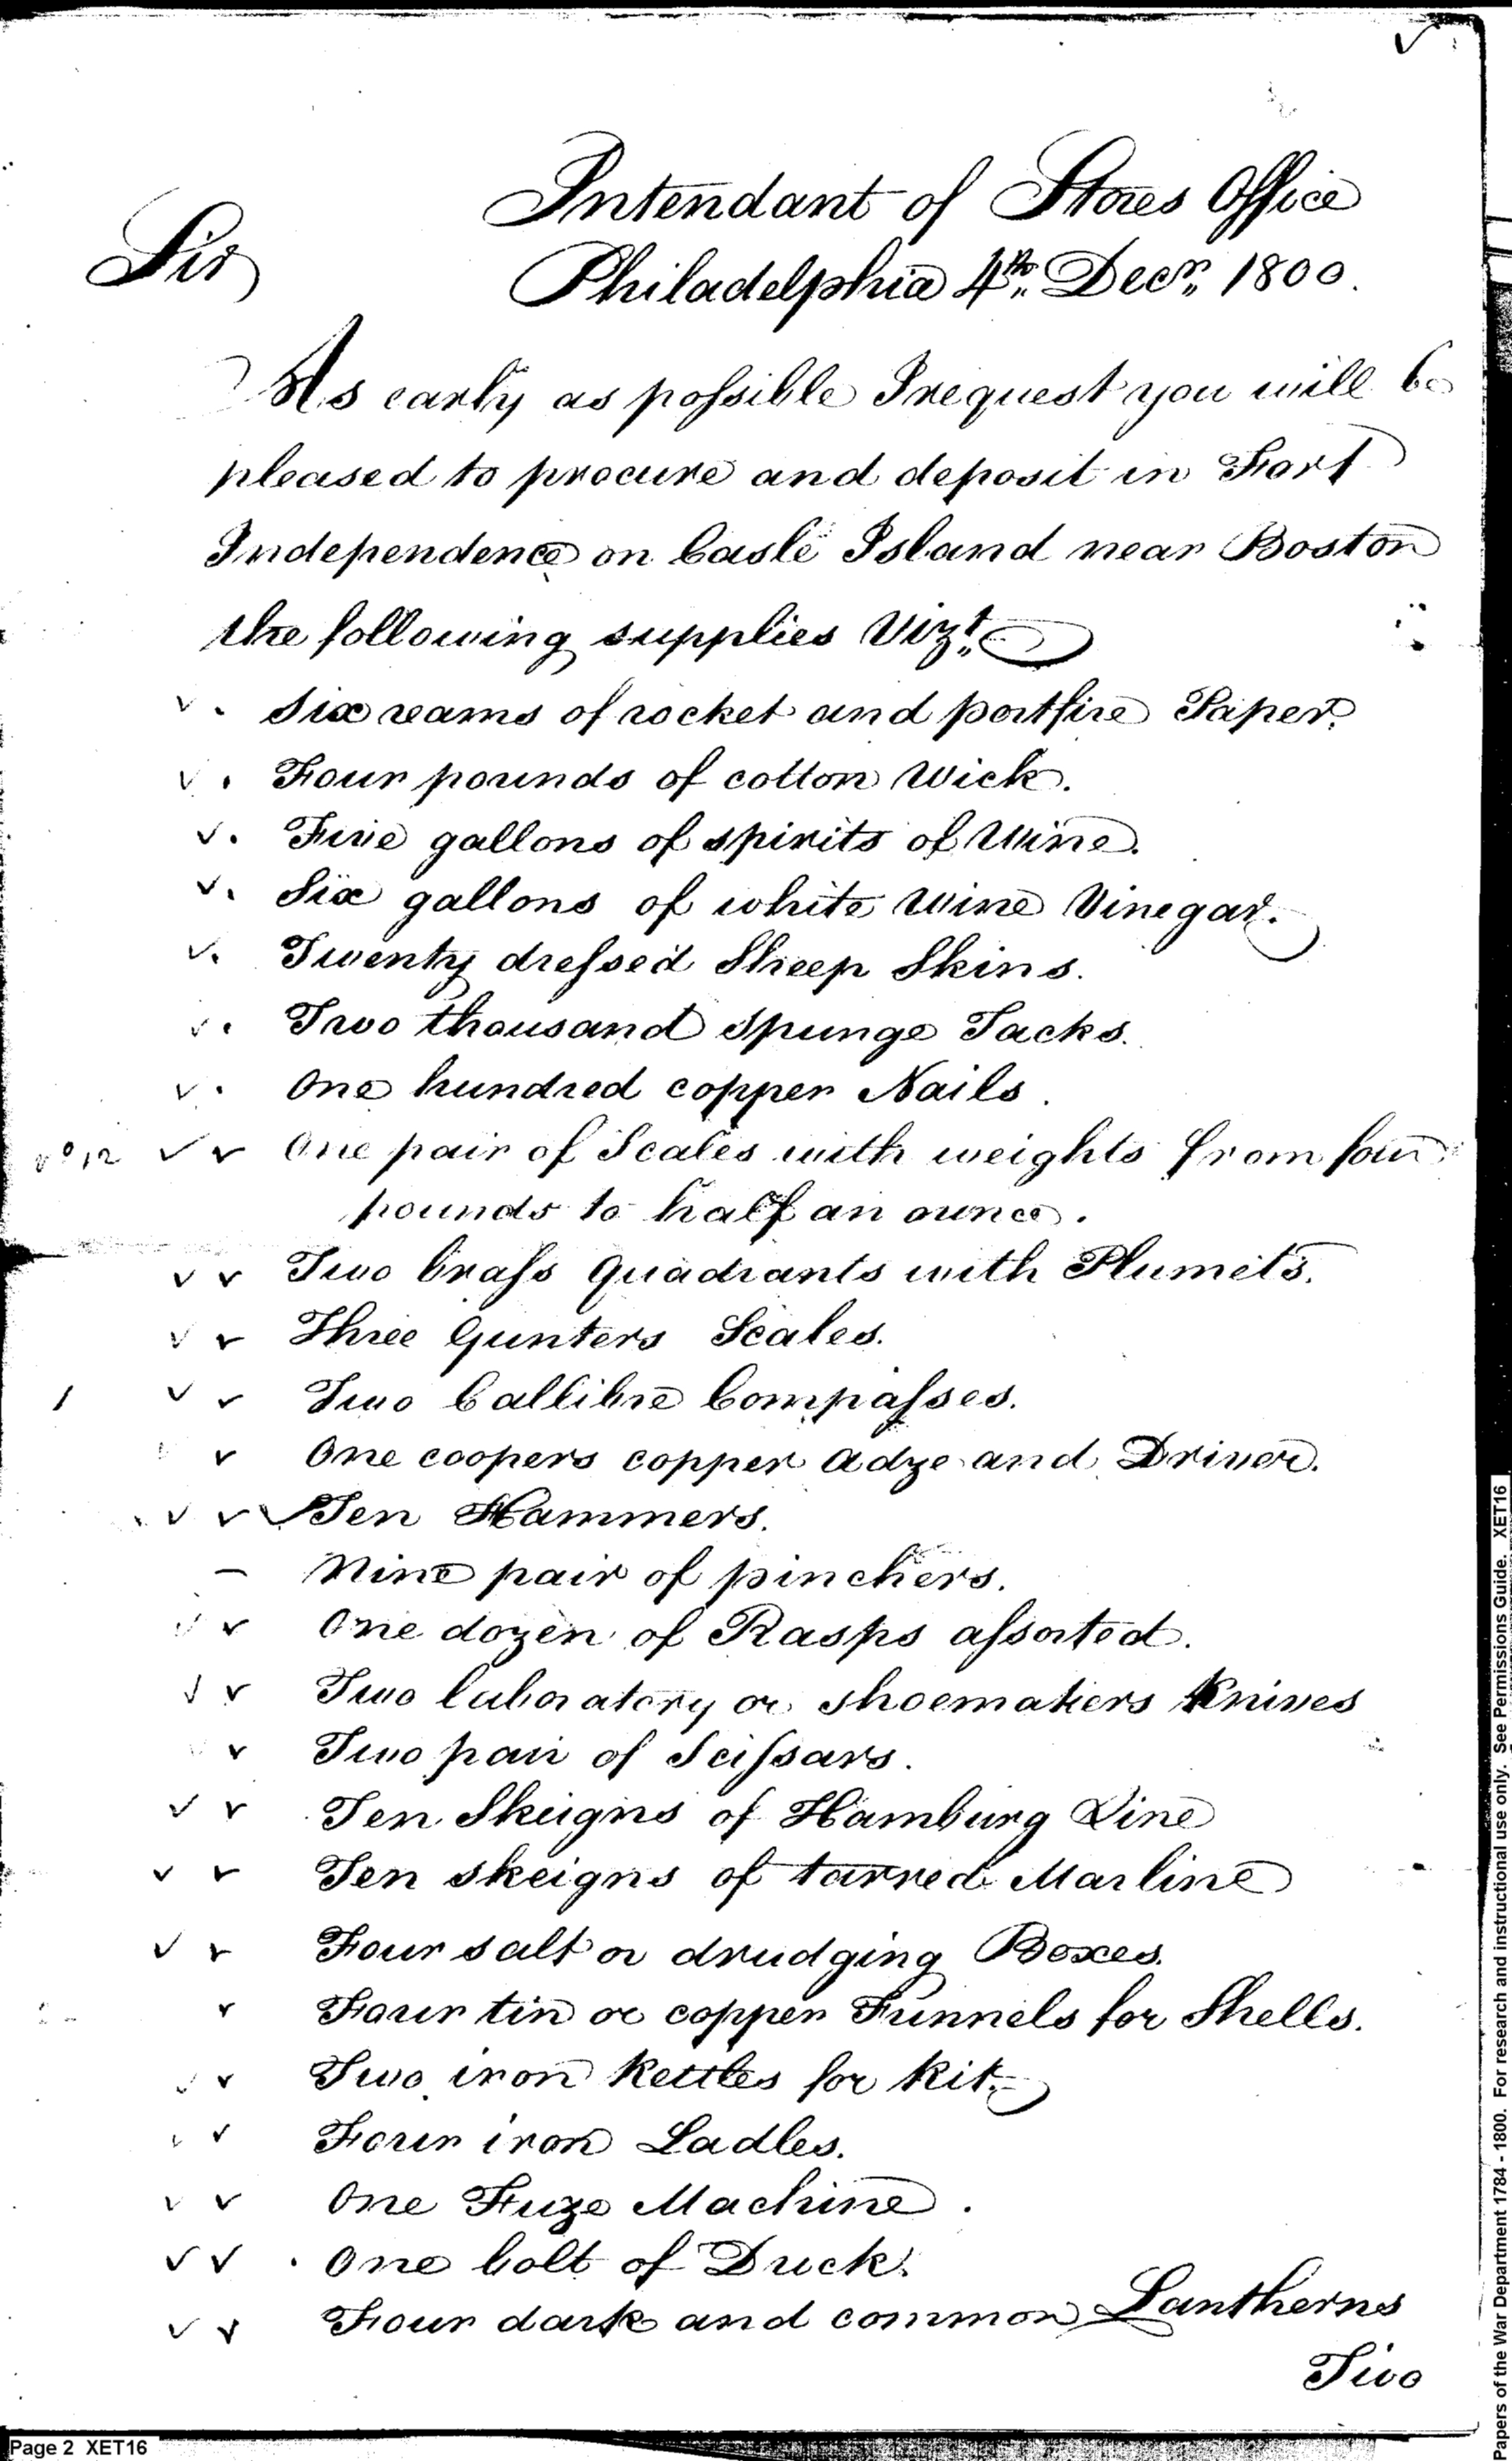 Intendant of Stores Office
Sir
Philadelphia 4th Decr 1800.
As early as possible I request you will be
pleased to procure and deposit in Fort
Independence on Casle Island near Boston
the following supplies Vizt
Six reams of rocket and portfire Paper.
Four pounds of cotton Wick.
Five gallons of spirits of Wine.
Six gallons of white Wine Vinegar.
Twenty dressed Sheep Skins.
Two thousand Spunge Tacks.
One hundred copper Nails.
No 12 One pair of Scales with weights from four
pounds to half an ounce.
Two brass Quadrants with Plumets.
Three Gunters Scales.
Two Callibre Compasses.
One coopers copper Adze and Driver.
Ten Hammers.
Nine pair of pinchers.
One dozen of Rasps assorted.
Two laboratory or shoemakers Knives
Two pair of Scissars.
Ten Skeigns of Hamburg Line
Ten skeigns of tarred Marline
Four salt or drudging Boxes.
Four tin or copper Funnels for Shells.
Two iron Kettles for Kit.
Four iron Ladles.
One Fuze Machine.
One bolt of Duck.
Four dark and common Lantherns
Two
Page 2 XET16
Papers of the War Department 1784 - 1800. For research and instructional use only. See Permissions Guide. XET16